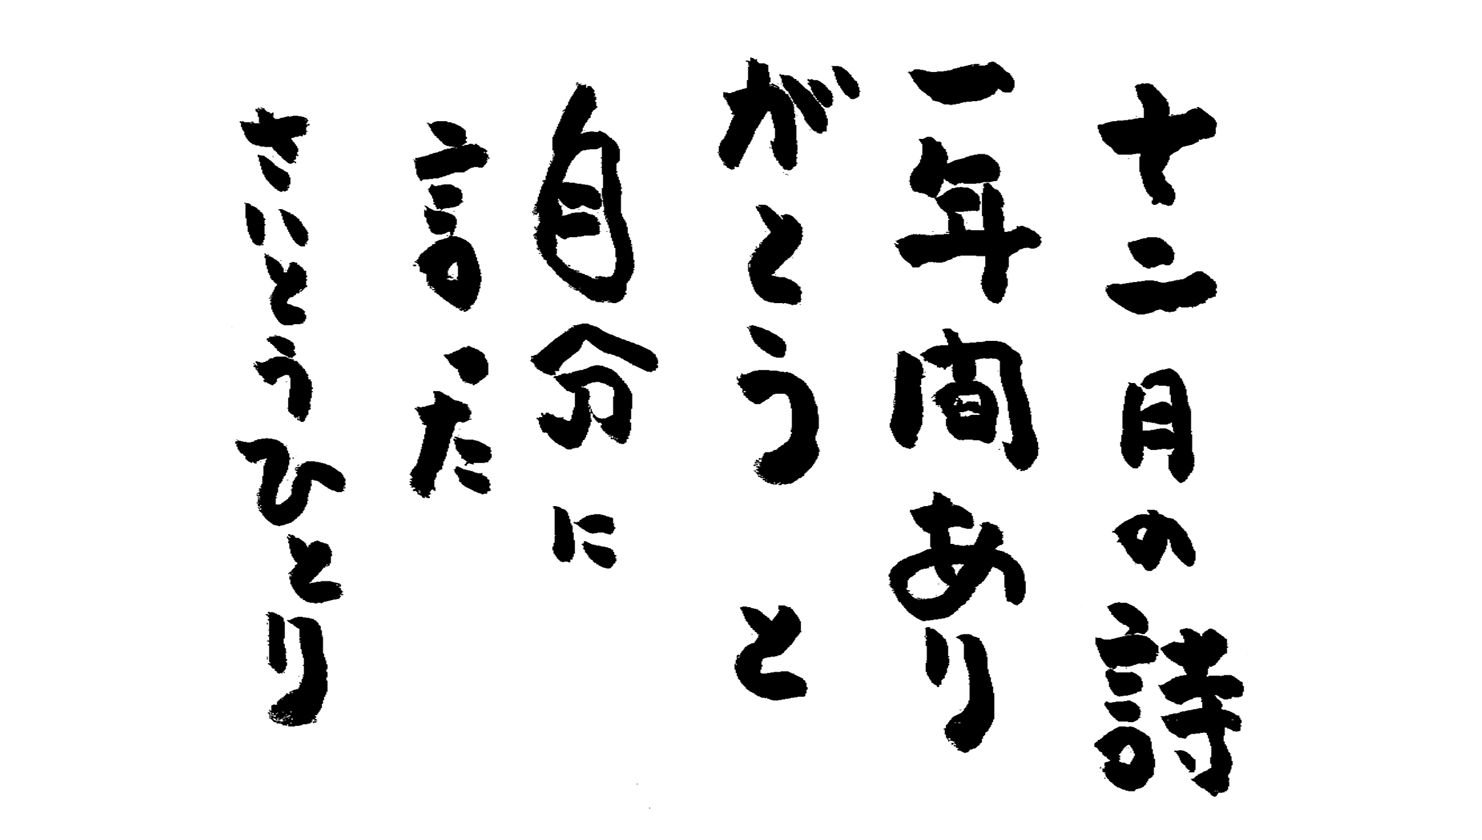 十二月の詩
一年間あり
がとう と
自分に
言った
さいとうひとり